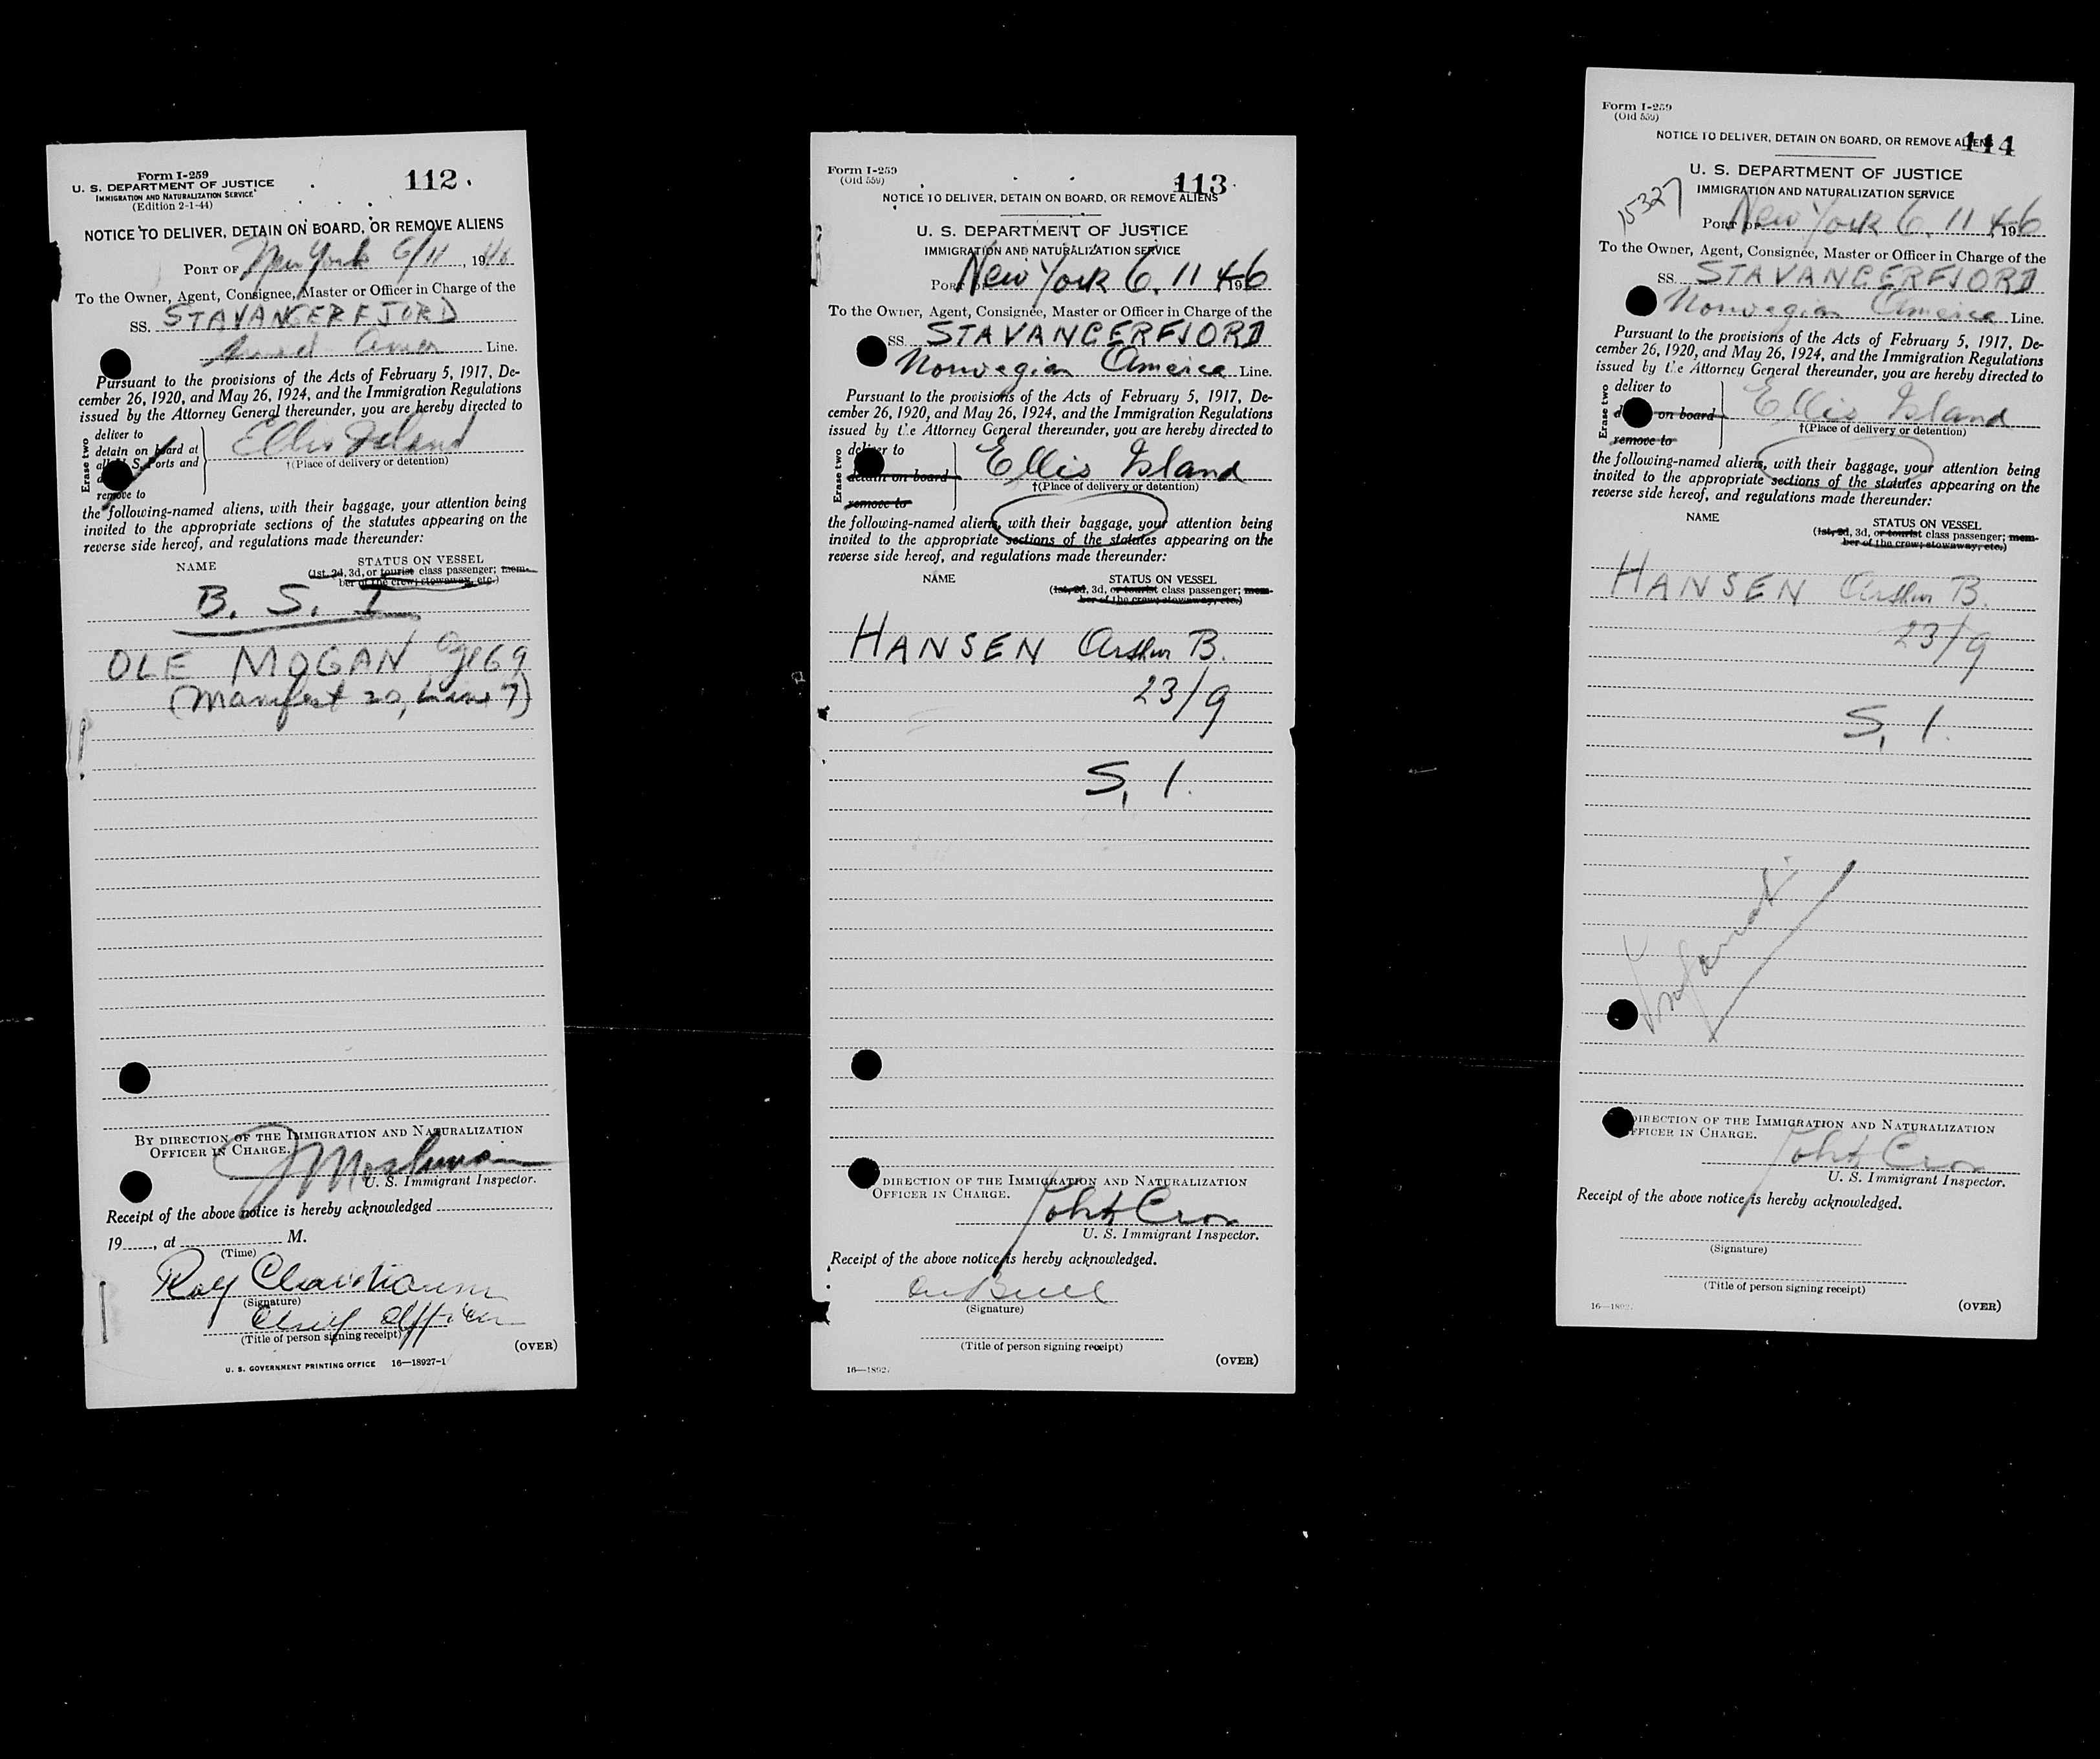 Form I-259
U. S. DEPARTMENT OF JUSTICE
IMMIGRATION AND NATURALIZATION SERVICE
(Edition 2-1-44)
112
NOTICE TO DELIVER, DETAIN ON BOARD, OR REMOVE ALIENS
PORT OF New York 6/11, 1946
To the Owner, Agent, Consignee, Master or Officer in Charge of the
SS. STAVANGERFJORD
Amer Line.
Pursuant to the provisions of the Acts of February 5, 1917, De-
cember 26, 1920, and May 26, 1924, and the Immigration Regulations
issued by the Attorney General thereunder, you are hereby directed to
Erase two
deliver to
detain on board at
all U. S. Ports and
remove to
Ellis Island
†(Place of delivery or detention)
the following-named aliens, with their baggage, your attention being
invited to the appropriate sections of the statutes appearing on the
reverse side hereof, and regulations made thereunder:
NAME
STATUS ON VESSEL
(1st, 2d, 3d, or tourist class passenger; mem-
ber of the crew; stowaway, etc.)
B. S. I
OLE MOGAN Age 69
(Manifest 20, Line 7)
BY DIRECTION OF THE IMMIGRATION AND NATURALIZATION
OFFICER IN CHARGE.
U. S. Immigrant Inspector.
Receipt of the above notice is hereby acknowledged
19, at M.
(Time)
(Signature)
Chief Officer
(Title of person signing receipt)
(OVER)
U. S. GOVERNMENT PRINTING OFFICE 16—18927-1
Form I-259
(Old 559)
113
NOTICE TO DELIVER, DETAIN ON BOARD, OR REMOVE ALIENS
U. S. DEPARTMENT OF JUSTICE
IMMIGRATION AND NATURALIZATION SERVICE
PORT OF New York 6. 11 1946
To the Owner, Agent, Consignee, Master or Officer in Charge of the
SS. STAVANGERFJORD
Norwegian America Line.
Pursuant to the provisions of the Acts of February 5, 1917, De-
cember 26, 1920, and May 26, 1924, and the Immigration Regulations
issued by the Attorney General thereunder, you are hereby directed to
Erase two
deliver to
detain on board
remove to
Ellis Island
†(Place of delivery or detention)
the following-named aliens, with their baggage, your attention being
invited to the appropriate sections of the statutes appearing on the
reverse side hereof, and regulations made thereunder:
NAME
STATUS ON VESSEL
(1st, 2d, 3d, or tourist class passenger; mem-
ber of the crew; stowaway, etc.)
HANSEN Arthur B.
23/9
S. I.
DIRECTION OF THE IMMIGRATION AND NATURALIZATION
OFFICER IN CHARGE.
U. S. Immigrant Inspector.
Receipt of the above notice is hereby acknowledged.
(Signature)
(Title of person signing receipt)
16—1892
(OVER)
Form I-259
(Old 559)
NOTICE TO DELIVER, DETAIN ON BOARD, OR REMOVE ALIENS
114
U. S. DEPARTMENT OF JUSTICE
IMMIGRATION AND NATURALIZATION SERVICE
15327
PORT OF New York 6. 11 1946
To the Owner, Agent, Consignee, Master or Officer in Charge of the
SS. STAVANGERFJORD
Norwegian America Line.
Pursuant to the provisions of the Acts of February 5, 1917, De-
cember 26, 1920, and May 26, 1924, and the Immigration Regulations
issued by the Attorney General thereunder, you are hereby directed to
Erase two
deliver to
on board
remove to
Ellis Island
†(Place of delivery or detention)
the following-named aliens, with their baggage, your attention being
invited to the appropriate sections of the statutes appearing on the
reverse side hereof, and regulations made thereunder:
NAME
STATUS ON VESSEL
(1st, 2d, 3d, or tourist class passenger; mem-
ber of the crew; stowaway, etc.)
HANSEN Arthur B.
23/9
S. I.
DIRECTION OF THE IMMIGRATION AND NATURALIZATION
OFFICER IN CHARGE.
U. S. Immigrant Inspector.
Receipt of the above notice is hereby acknowledged.
(Signature)
(Title of person signing receipt)
16—1892
(OVER)